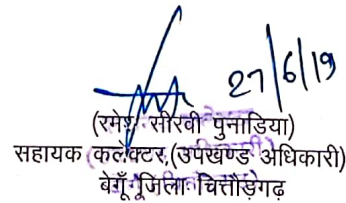 27/6/19
(रमेश सीरवी पुनाडिया)
सहायक कलेक्टर,(उपखण्ड अधिकारी)
बेगूँ जिला चित्तौड़गढ़